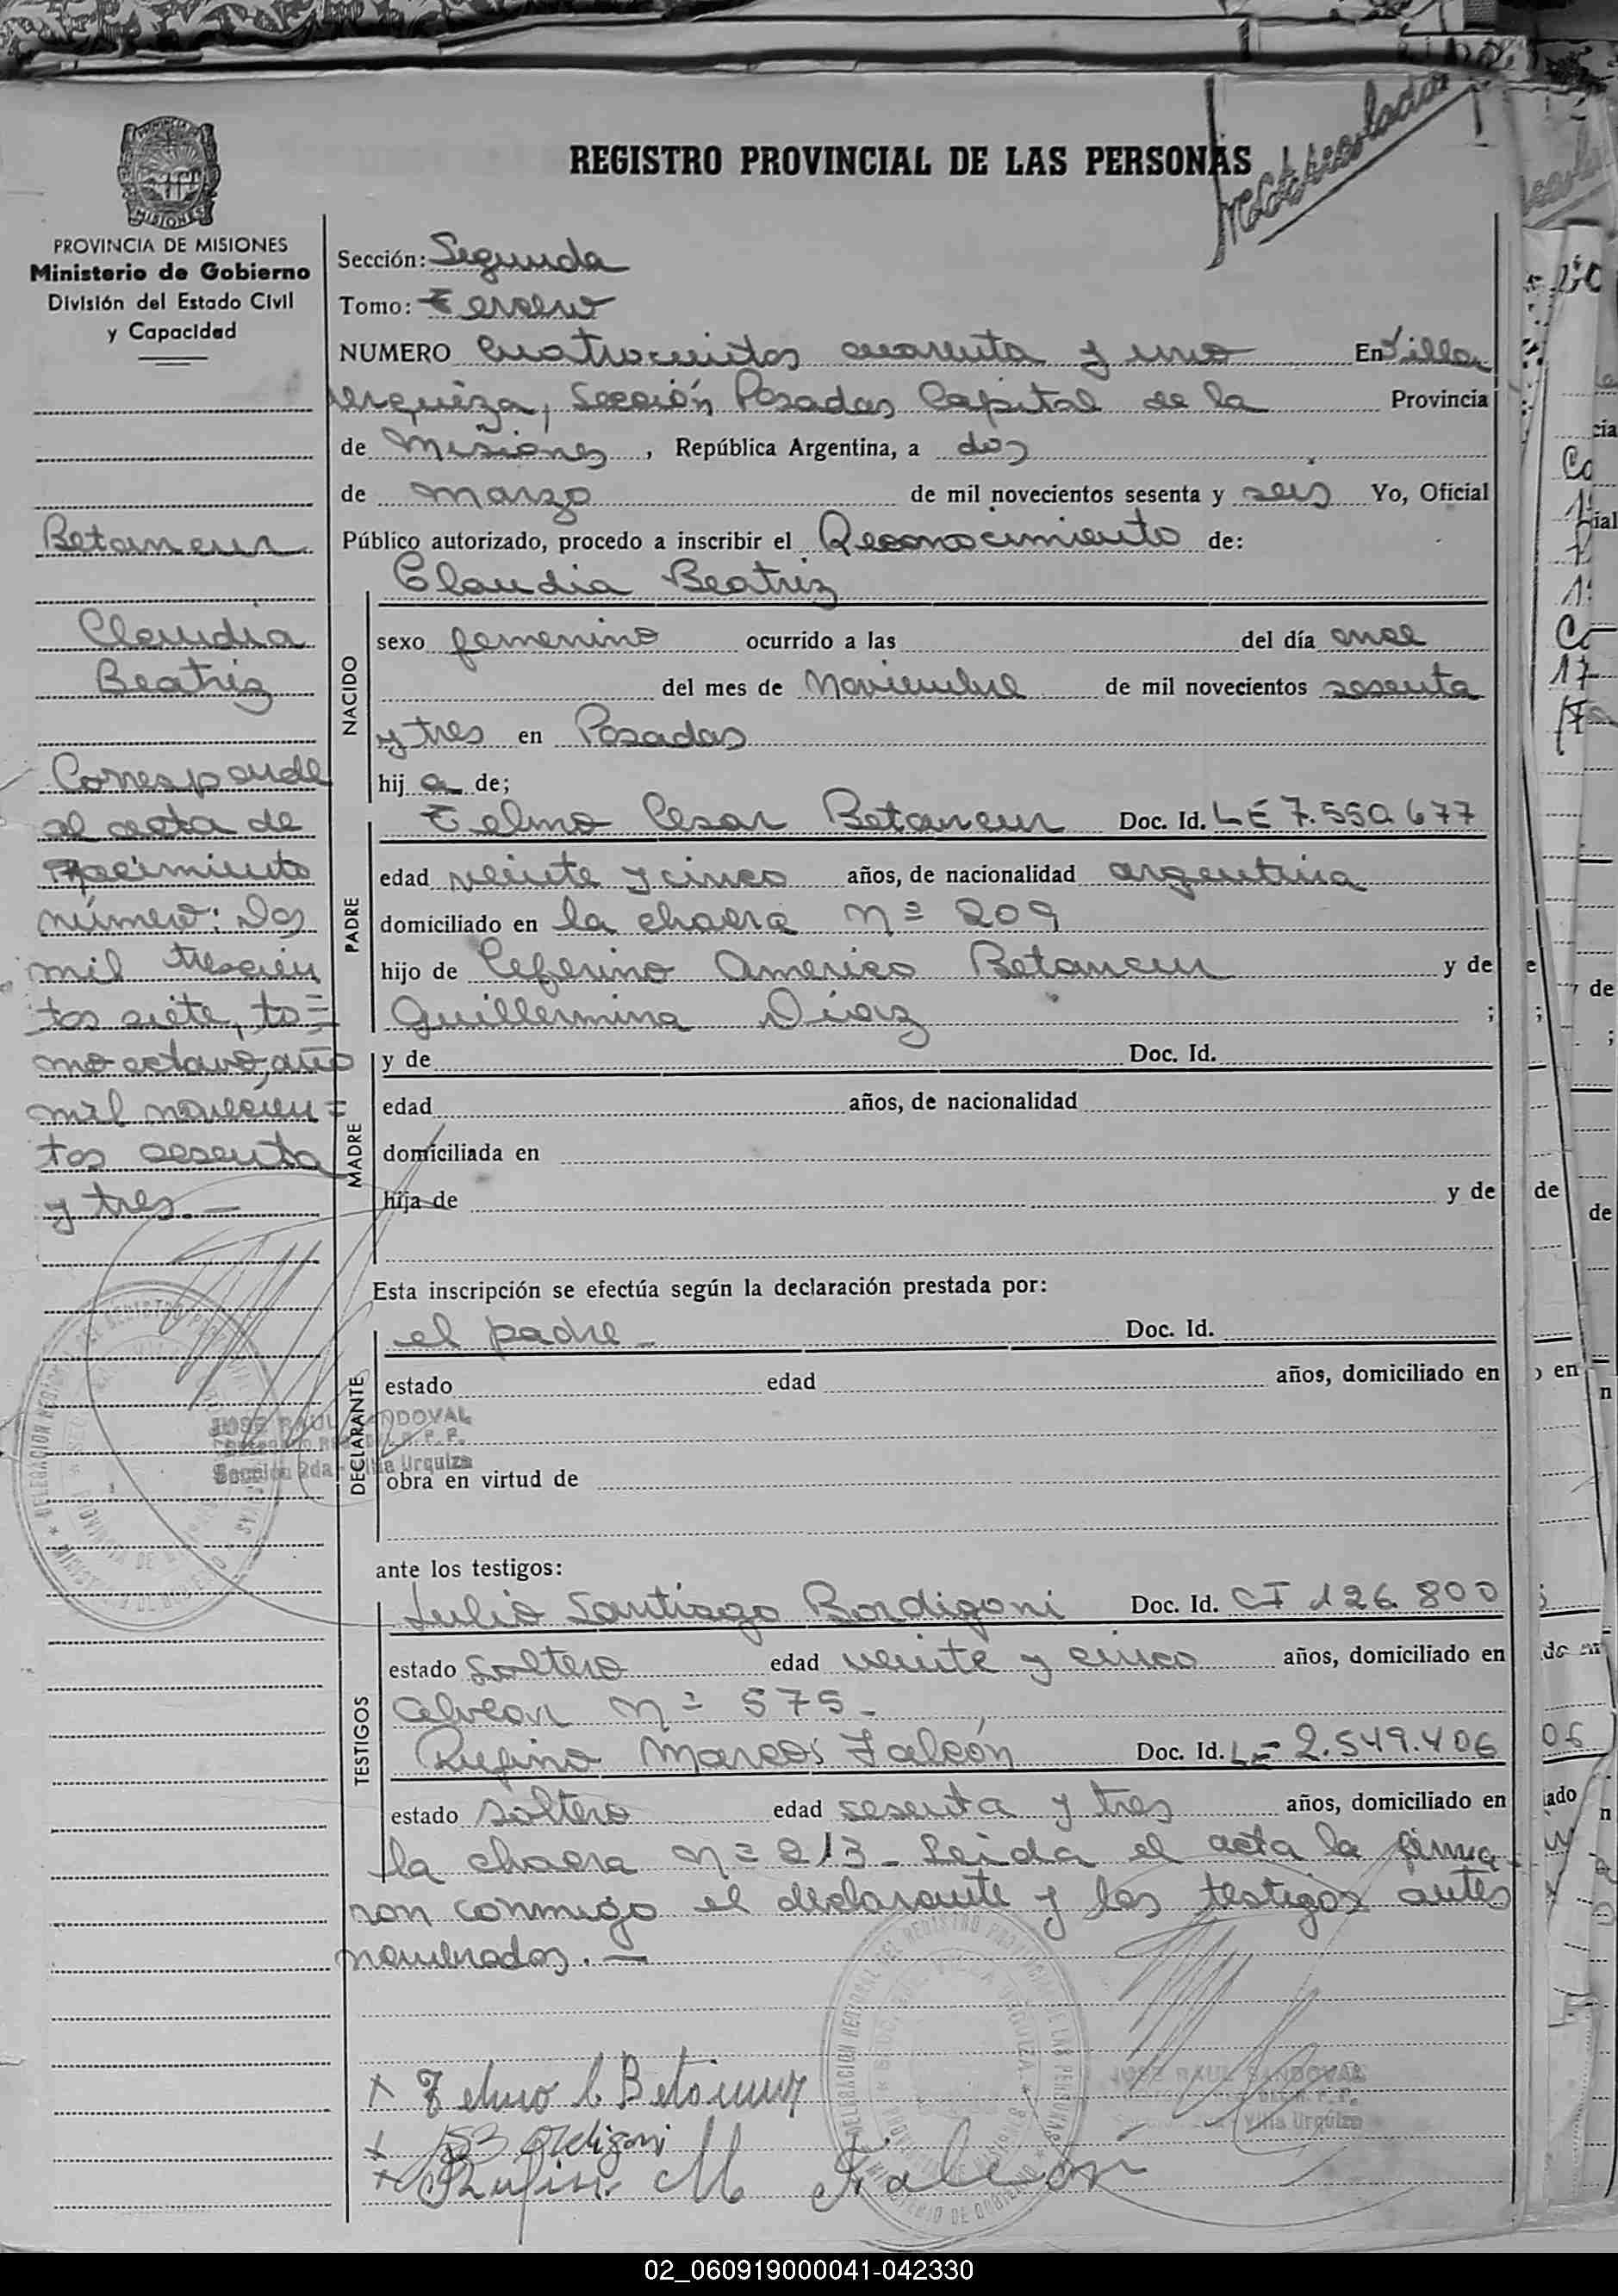 REGISTRO PROVINCIAL DE LAS PERSONAS
MISIONES
PROVINCIA DE MISIONES
Ministerio de Gobierno
División del Estado Civil
y Capacidad
Betancur
Claudia
Beatriz
Corresponde
al acta de
nacimiento
número: Dos
mil trescien
tos siete, to=
mo octavo, año
mil novecien=
tos sesenta
y tres.—
Sección: Segunda
Tomo: Tercero
NUMERO Cuatrocientos cuarenta y uno En Villa
Urquiza, Sección Posadas Capital de la Provincia
de Misiones, República Argentina, a dos
de marzo de mil novecientos sesenta y seis Yo, Oficial
Público autorizado, procedo a inscribir el Reconocimiento de:
Claudia Beatriz
NACIDO
sexo femenino ocurrido a las del día once
del mes de Noviembre de mil novecientos sesenta
y tres en Posadas
hij a de;
PADRE
Telmo Cesar Betancur Doc. Id. LE 7.550.677
edad veinte y cinco años, de nacionalidad argentina
domiciliado en la chacra Nº 209
hijo de Ceferino Americo Betancur y de
Guillermina Diaz ;
MADRE
y de Doc. Id.
edad años, de nacionalidad
domiciliada en
hija de y de
Esta inscripción se efectúa según la declaración prestada por:
DECLARANTE
el padre - Doc. Id.
estado edad años, domiciliado en
obra en virtud de
JOSE RAUL SANDOVAL
Sección 2da - Villa Urquiza
ante los testigos:
TESTIGOS
Julio Santiago Bordigoni Doc. Id. CI 126.800
estado soltero edad veinte y cinco años, domiciliado en
Alvear Nº 575 -
Rufino Marcos Falcón Doc. Id. LE 2.549.406
estado soltero edad sesenta y tres años, domiciliado en
la chacra Nº 213 - Leida el acta la firma-
ron conmigo el declarante y los testigos antes
nombrados. —
x Telmo C Betancur
JOSE RAUL SANDOVAL
Villa Urquiza
x JSBordigoni
x Rufino M Falcón
02_060919000041-042330